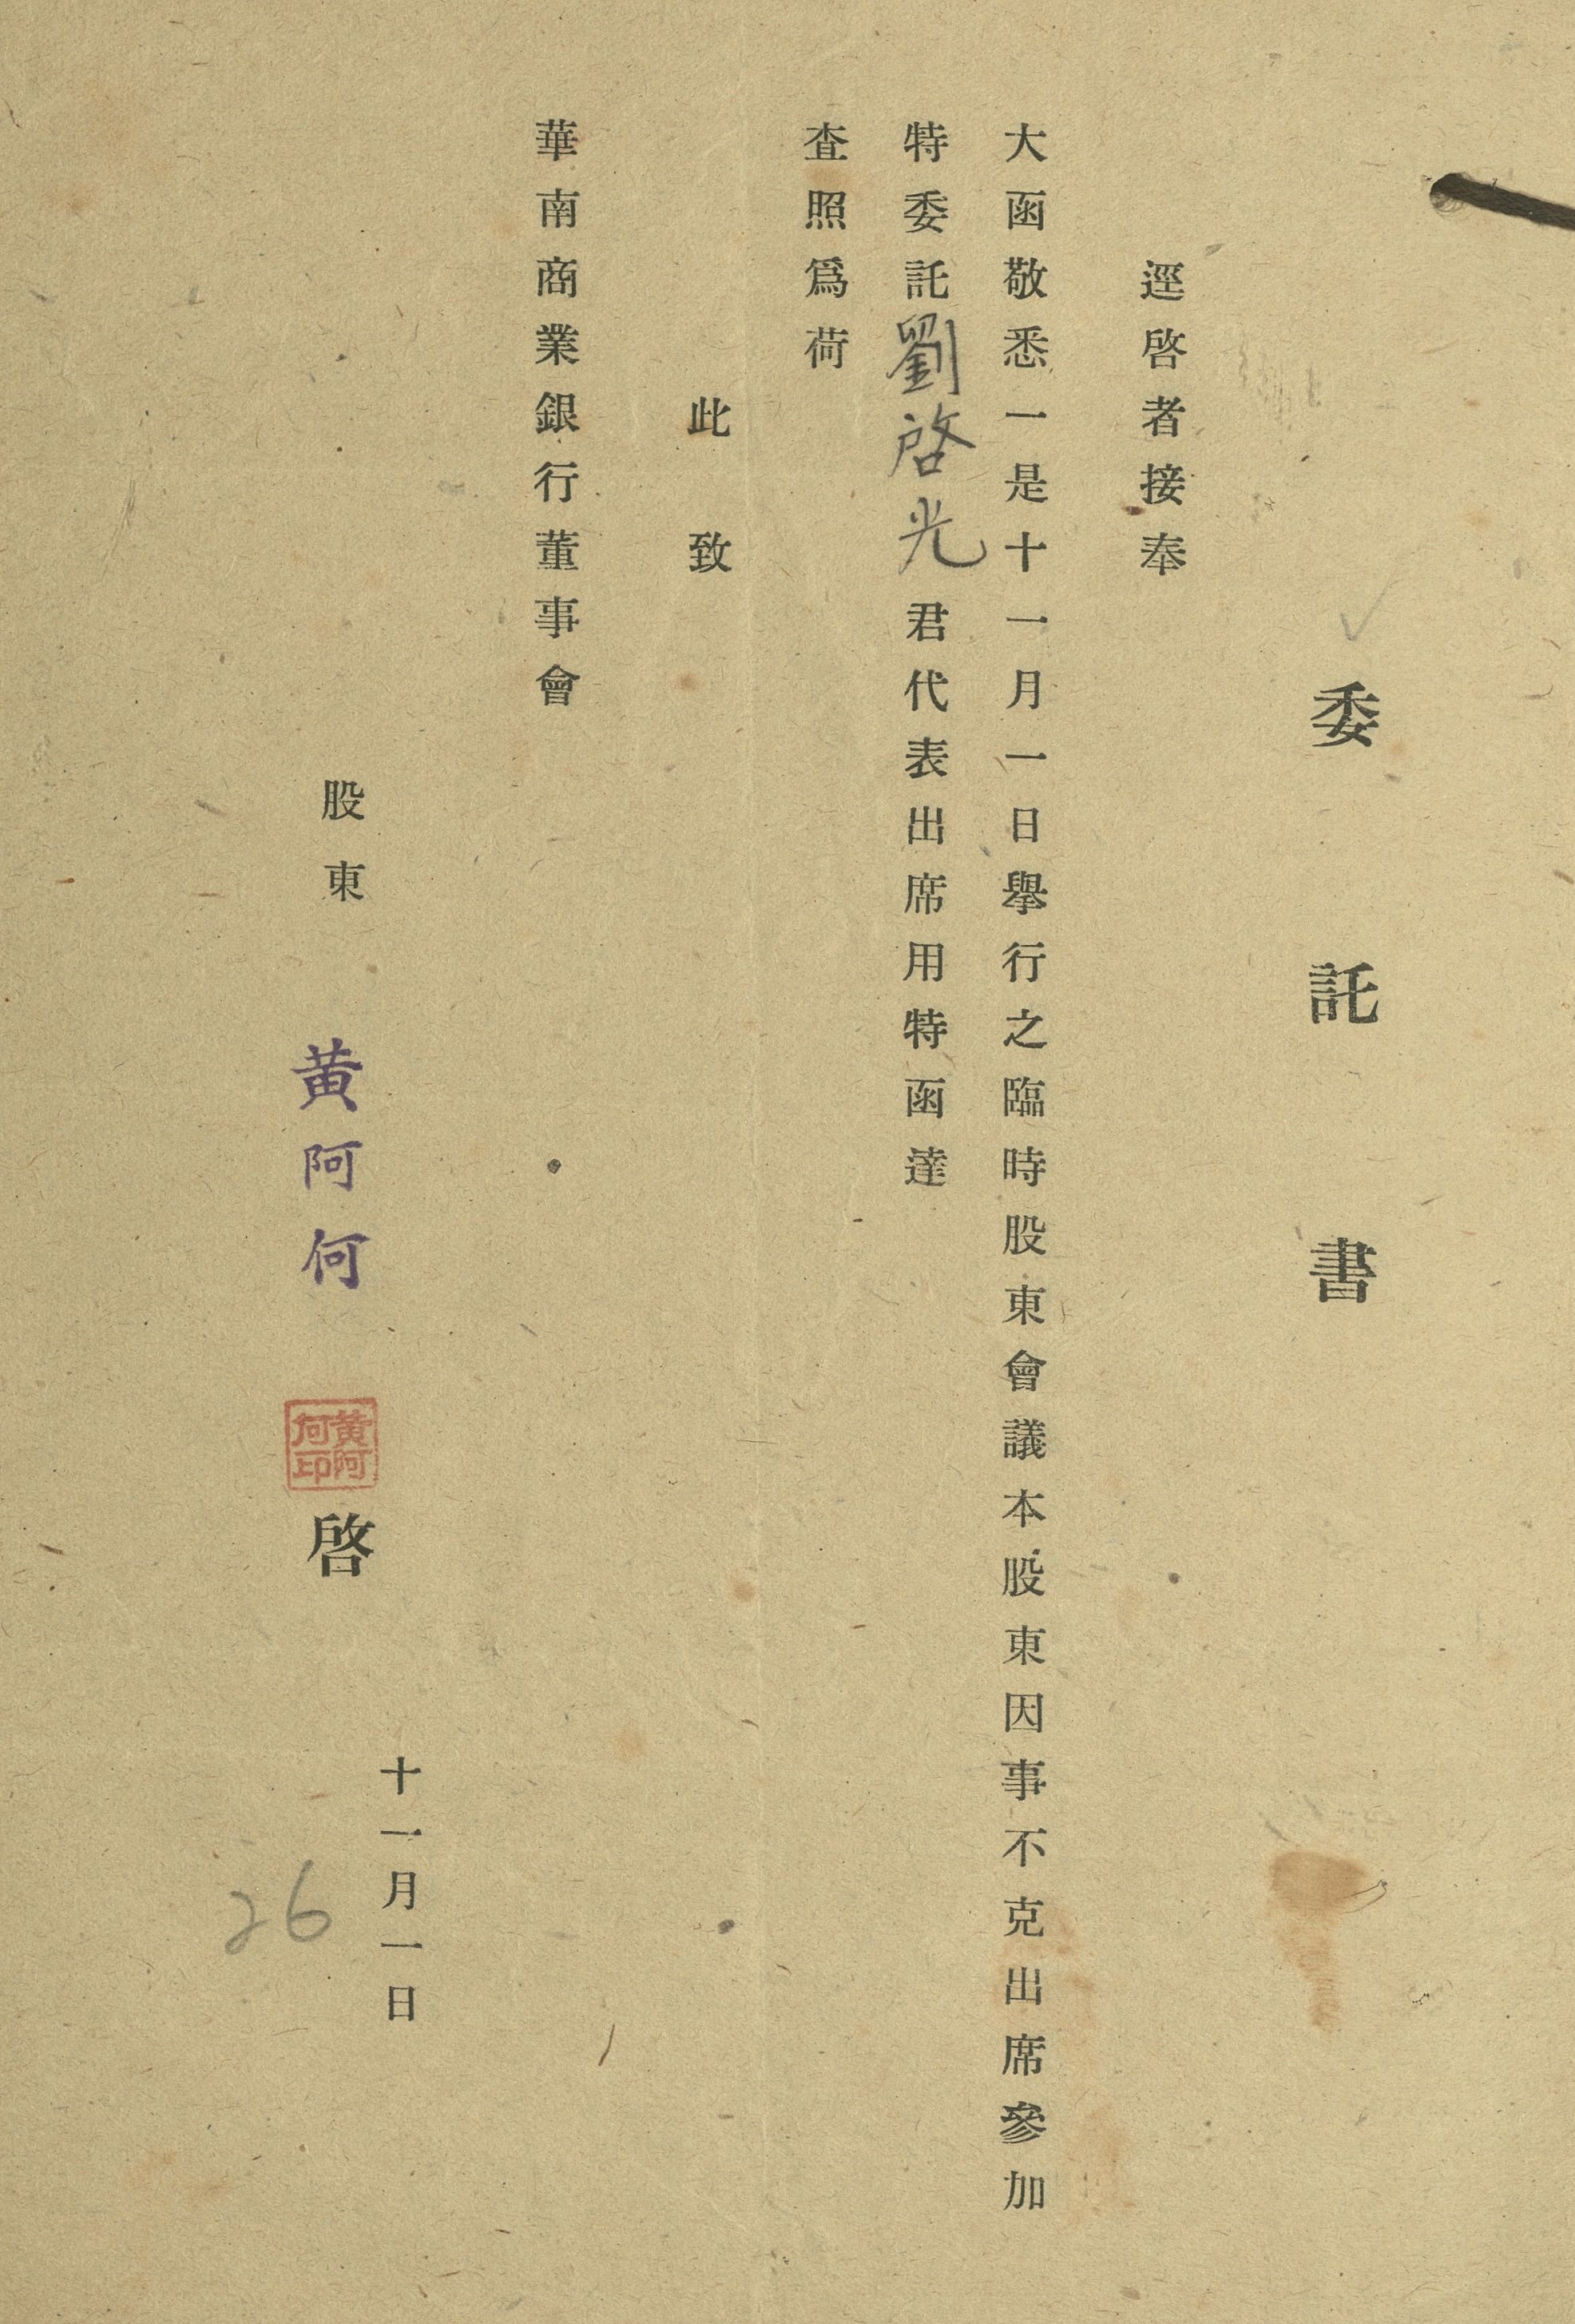 委託書
逕啓者接奉
大函敬悉一是十一月一日舉行之臨時股東會議本股東因事不克出席參加
特委託劉啓光君代表出席用特函達
查照爲荷
此致
華南商業銀行董事會
十一月一日
股東 黄阿何 啓
黄阿何印
26